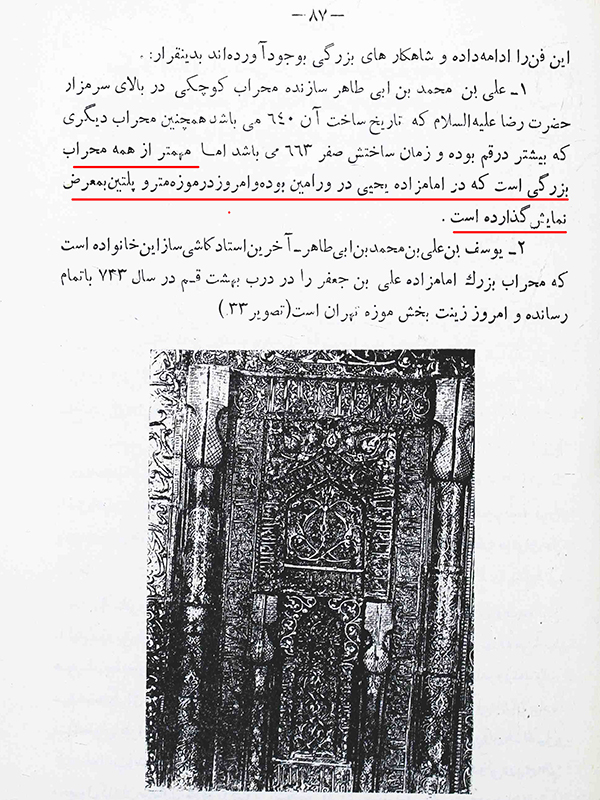 -٨٧-
این فن‌را ادامه‌داده و شاهکار های بزرگی بوجودآورده‌اند بدینقرار: .
١- علی بن محمد بن ابی طاهر سازنده محراب کوچکی در بالای سرمزار
حضرت رضا علیه‌السلام که تاریخ ساخت آن ٦٤٠ می باشد همچنین محراب دیگری
که بیشتر درقم بوده و زمان ساختش صفر ٦٦٣ می باشد اما مهمتر از همه محراب
بزرگی است که در امامزاده یحیی در ورامین بوده‌و امروز درموزه‌مترو پلتین‌بمعرض
نمایش گذارده است .
٢- یوسف بن‌علی‌بن‌محمدبن‌ابی‌طاهر- آخرین استاد کاشی ساز این خانواده است
که محراب بزرك امامزاده علی بن جعفر را در درب بهشت قم در سال ٧٤٣ باتمام
رسانده و امروز زینت بخش موزه تهران است(تصویر ٣٣.)